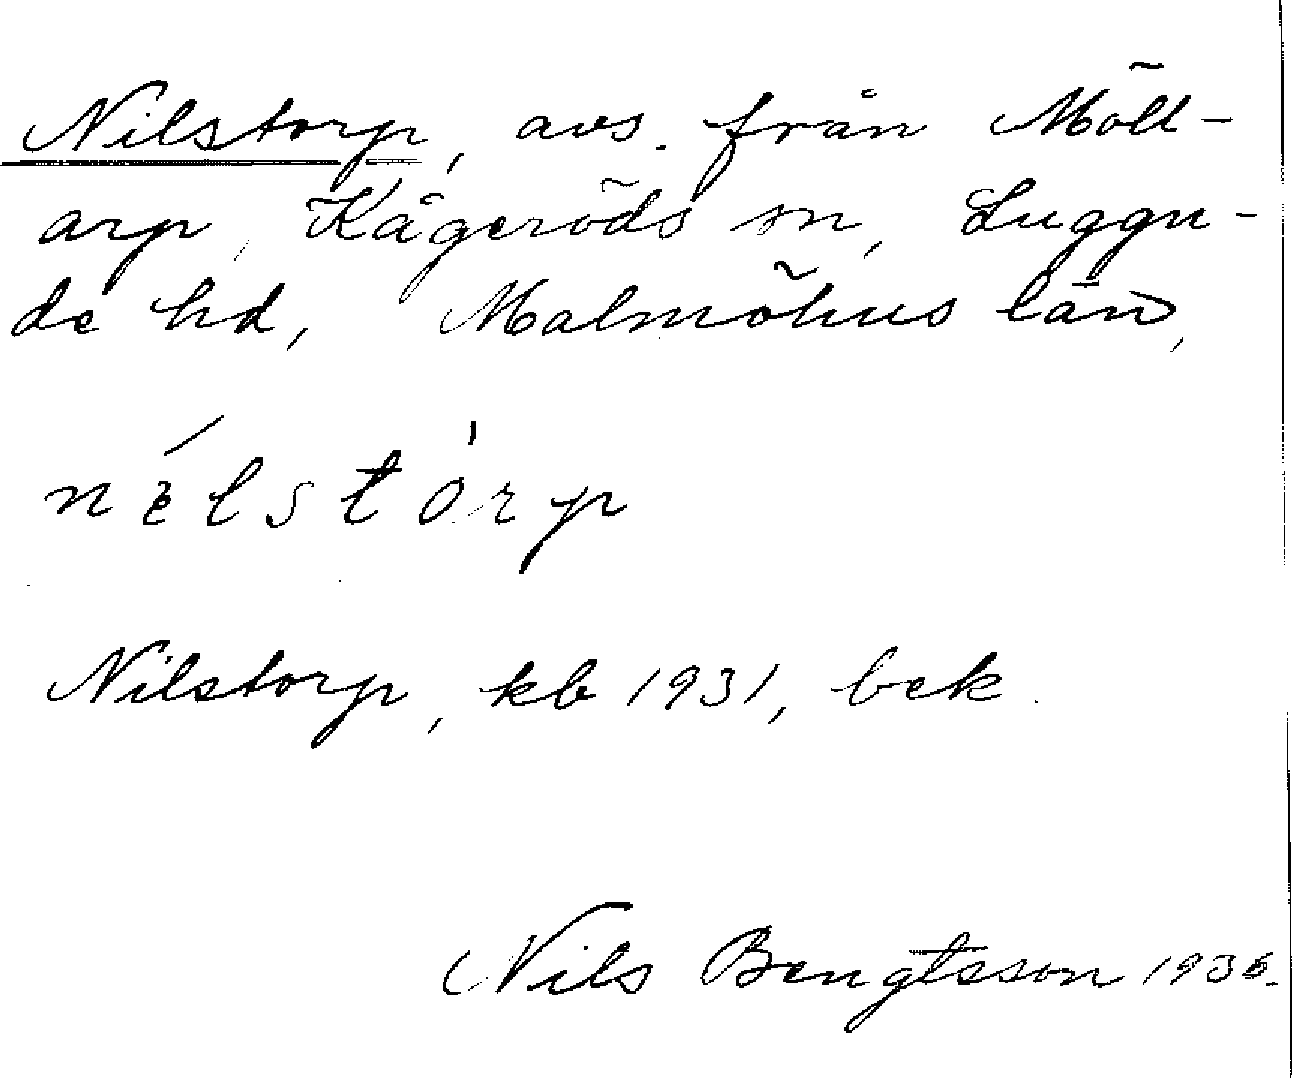 Nilstorp, avs. från Möll-
arp, Kågeröds sn, Luggu-
de hd, Malmöhus län,
nèlstòrp
Nilstorp, kb 1931, bek.
Nils Bengtsson 1936.